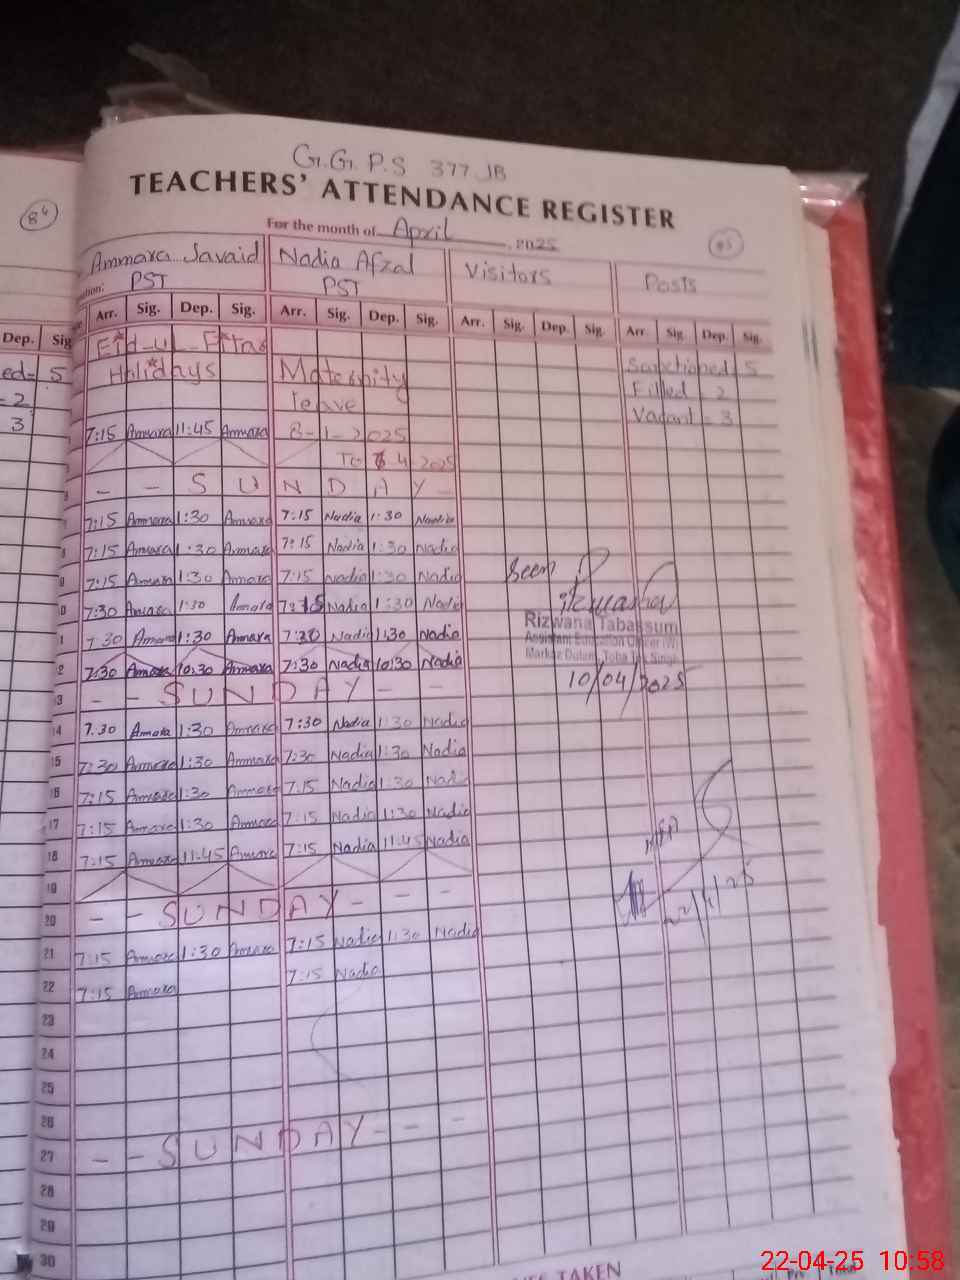 G.G.P.S 377 JB
TEACHERS' ATTENDANCE REGISTER
84
For the month of April, 2025
85
Ammara Javaid Nadia Afzal Visitors Posts
PST PST
Dep. Sig Arr. Sig. Dep. Sig. Arr. Sig. Dep. Sig. Arr. Sig. Dep. Sig. Arr. Sig. Dep. Sig.
Eid-ul-Fitar
ed= 5 Holidays Maternity Sanctioned 5
- 2 leave Filled - 2
3 7:15 Ammara 11:45 Ammara 8-1-2025 Vacant - 3
To 4 2025
- - S U N D A Y -
7:15 Ammara 1:30 Ammara 7:15 Nadia 1:30 Nadia
7:15 Ammara 1:30 Ammara 7:15 Nadia 1:30 Nadia
7:15 Ammara 1:30 Ammara 7:15 Nadia 1:30 Nadia
Seen
0 7:30 Ammara 1:30 Ammara 7:15 Nadia 1:30 Nadia
Rizwana Tabassum
1 7:30 Ammara 1:30 Ammara 7:20 Nadia 1:30 Nadia
Assistant Education Officer (W)
Markaz Dulam, Toba Tek Singh
2 7:30 Ammara 10:30 Ammara 7:30 Nadia 10:30 Nadia
10/04/2025
3 - - S U N D A Y - -
14 7.30 Ammara 1:30 Ammara 7:30 Nadia 1:30 Nadia
15 7:30 Ammara 1:30 Ammara 7:30 Nadia 1:30 Nadia
16 7:15 Ammara 1:30 Ammara 7:15 Nadia 1:30 Nadia
17 7:15 Ammara 1:30 Ammara 7:15 Nadia 1:30 Nadia
18 7:15 Ammara 11:45 Ammara 7:15 Nadia 11:45 Nadia
19
20 - - S U N D A Y - - -
22/4/25
21 7:15 Ammara 1:30 Ammara 7:15 Nadia 1:30 Nadia
22 7:15 Ammara 7:15 Nadia
23
24
25
26
27 - - S U N D A Y - - -
28
29
30
TAKEN
22-04-25 10:58